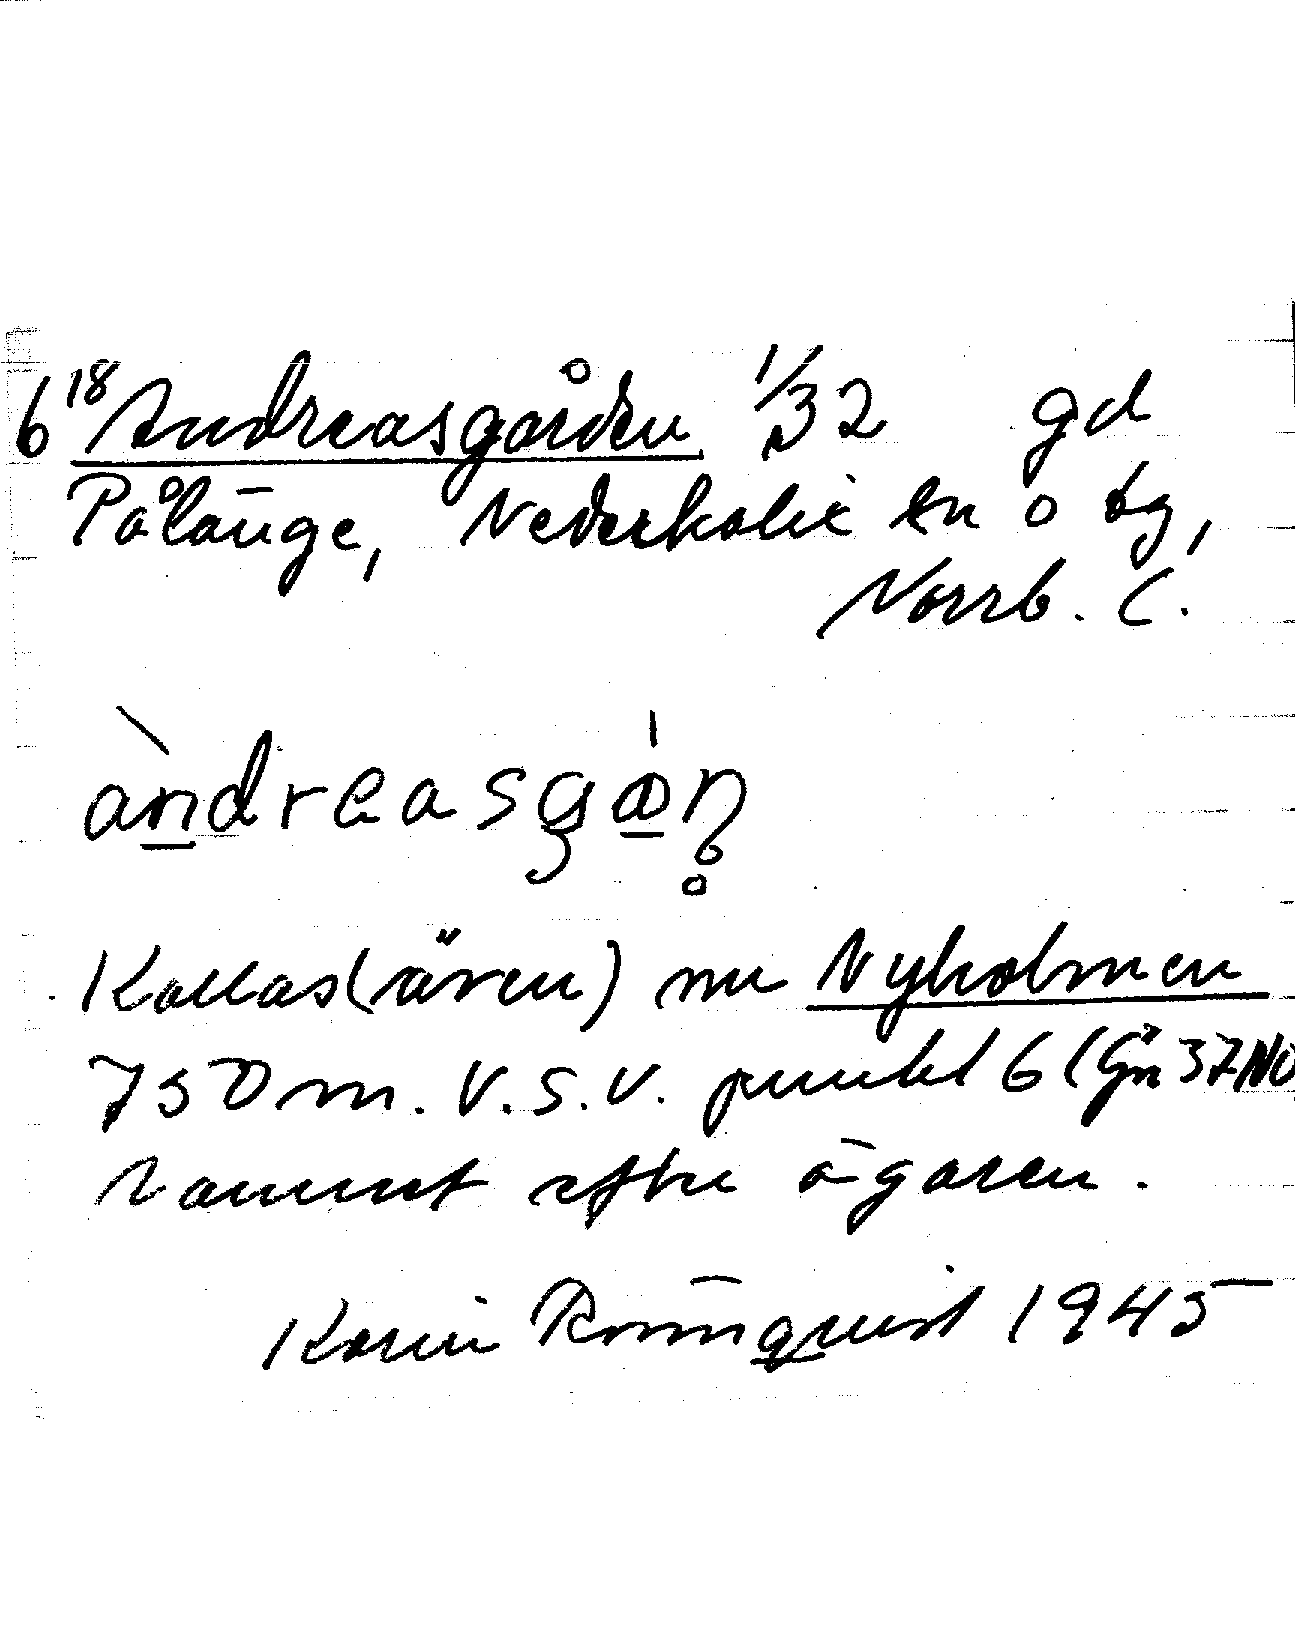 6¹⁸ Andreasgården 1/32 gd
Pålänge, Nederkalix sn o tg,
Norrb. l.
àndreasgá̊ṇ
Kallas (även) nu Nyholmen
750 m. V.S.V. punkt 6 (Gm 37 NO
Namnet efter ägaren.
Karin Rönnquist 1945